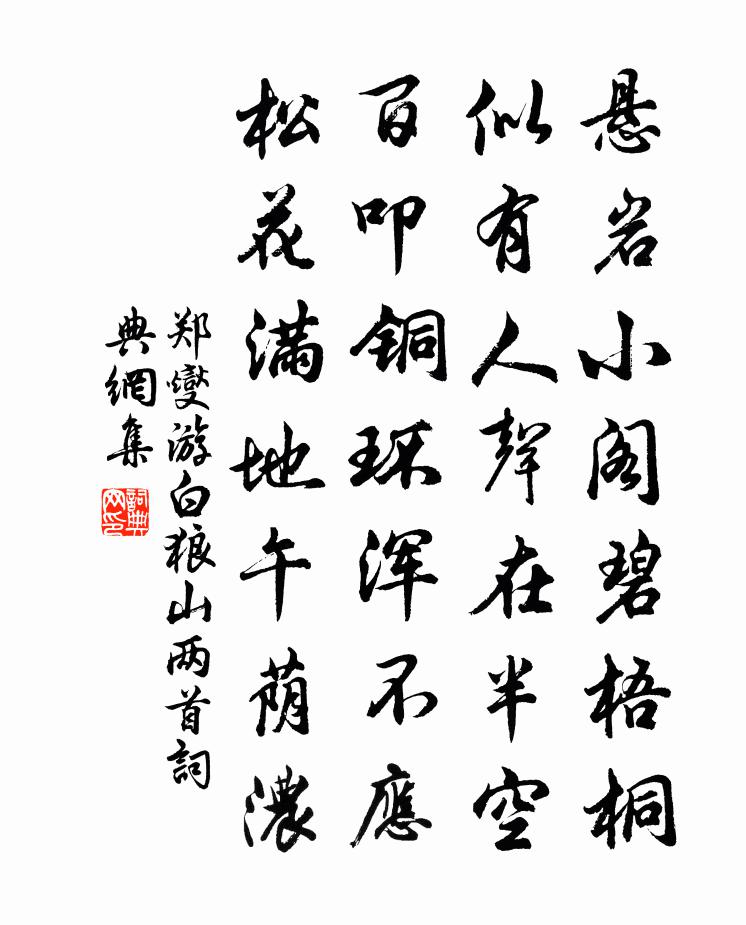 悬岩小阁碧梧桐
似有人聲在半空
百叩铜环浑不應
松花满地午荫濃
郑燮游白狼山两首詞
典網集
詞典
网印